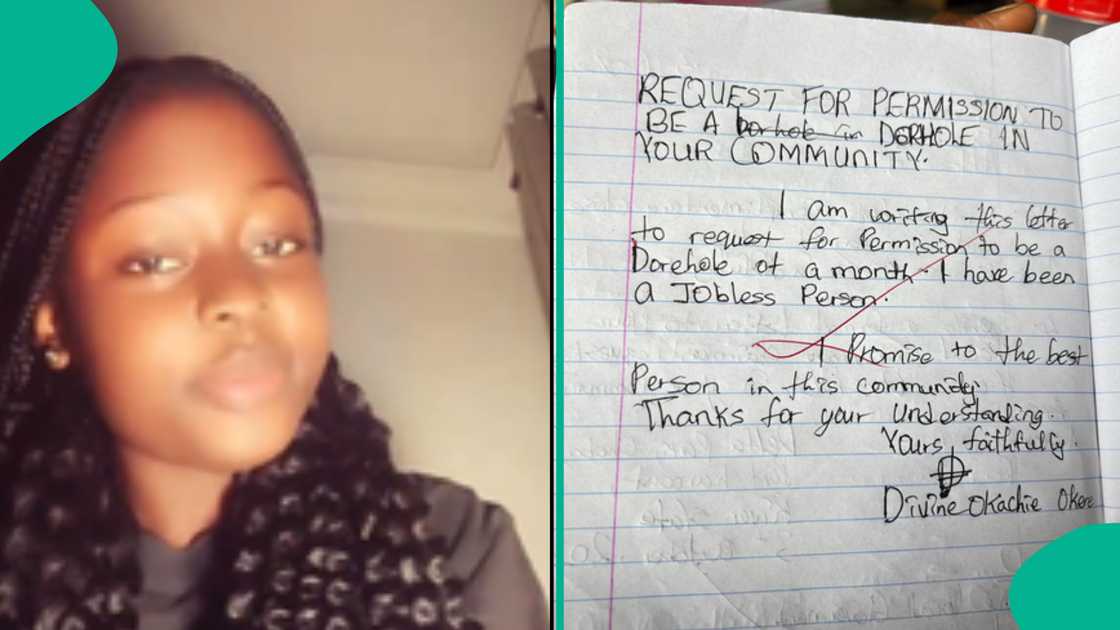 REQUEST FOR PERMISSION TO
BE A borhole in DORHOLE IN
YOUR COMMUNITY.
I am writing this letter
to request for Permission to be a
Dorehole of a month. I have been
a Jobless Person.
I Promise to the best
Person in this community.
Thanks for your Understanding.
Yours, faithfully.
Divine Okachie Okere